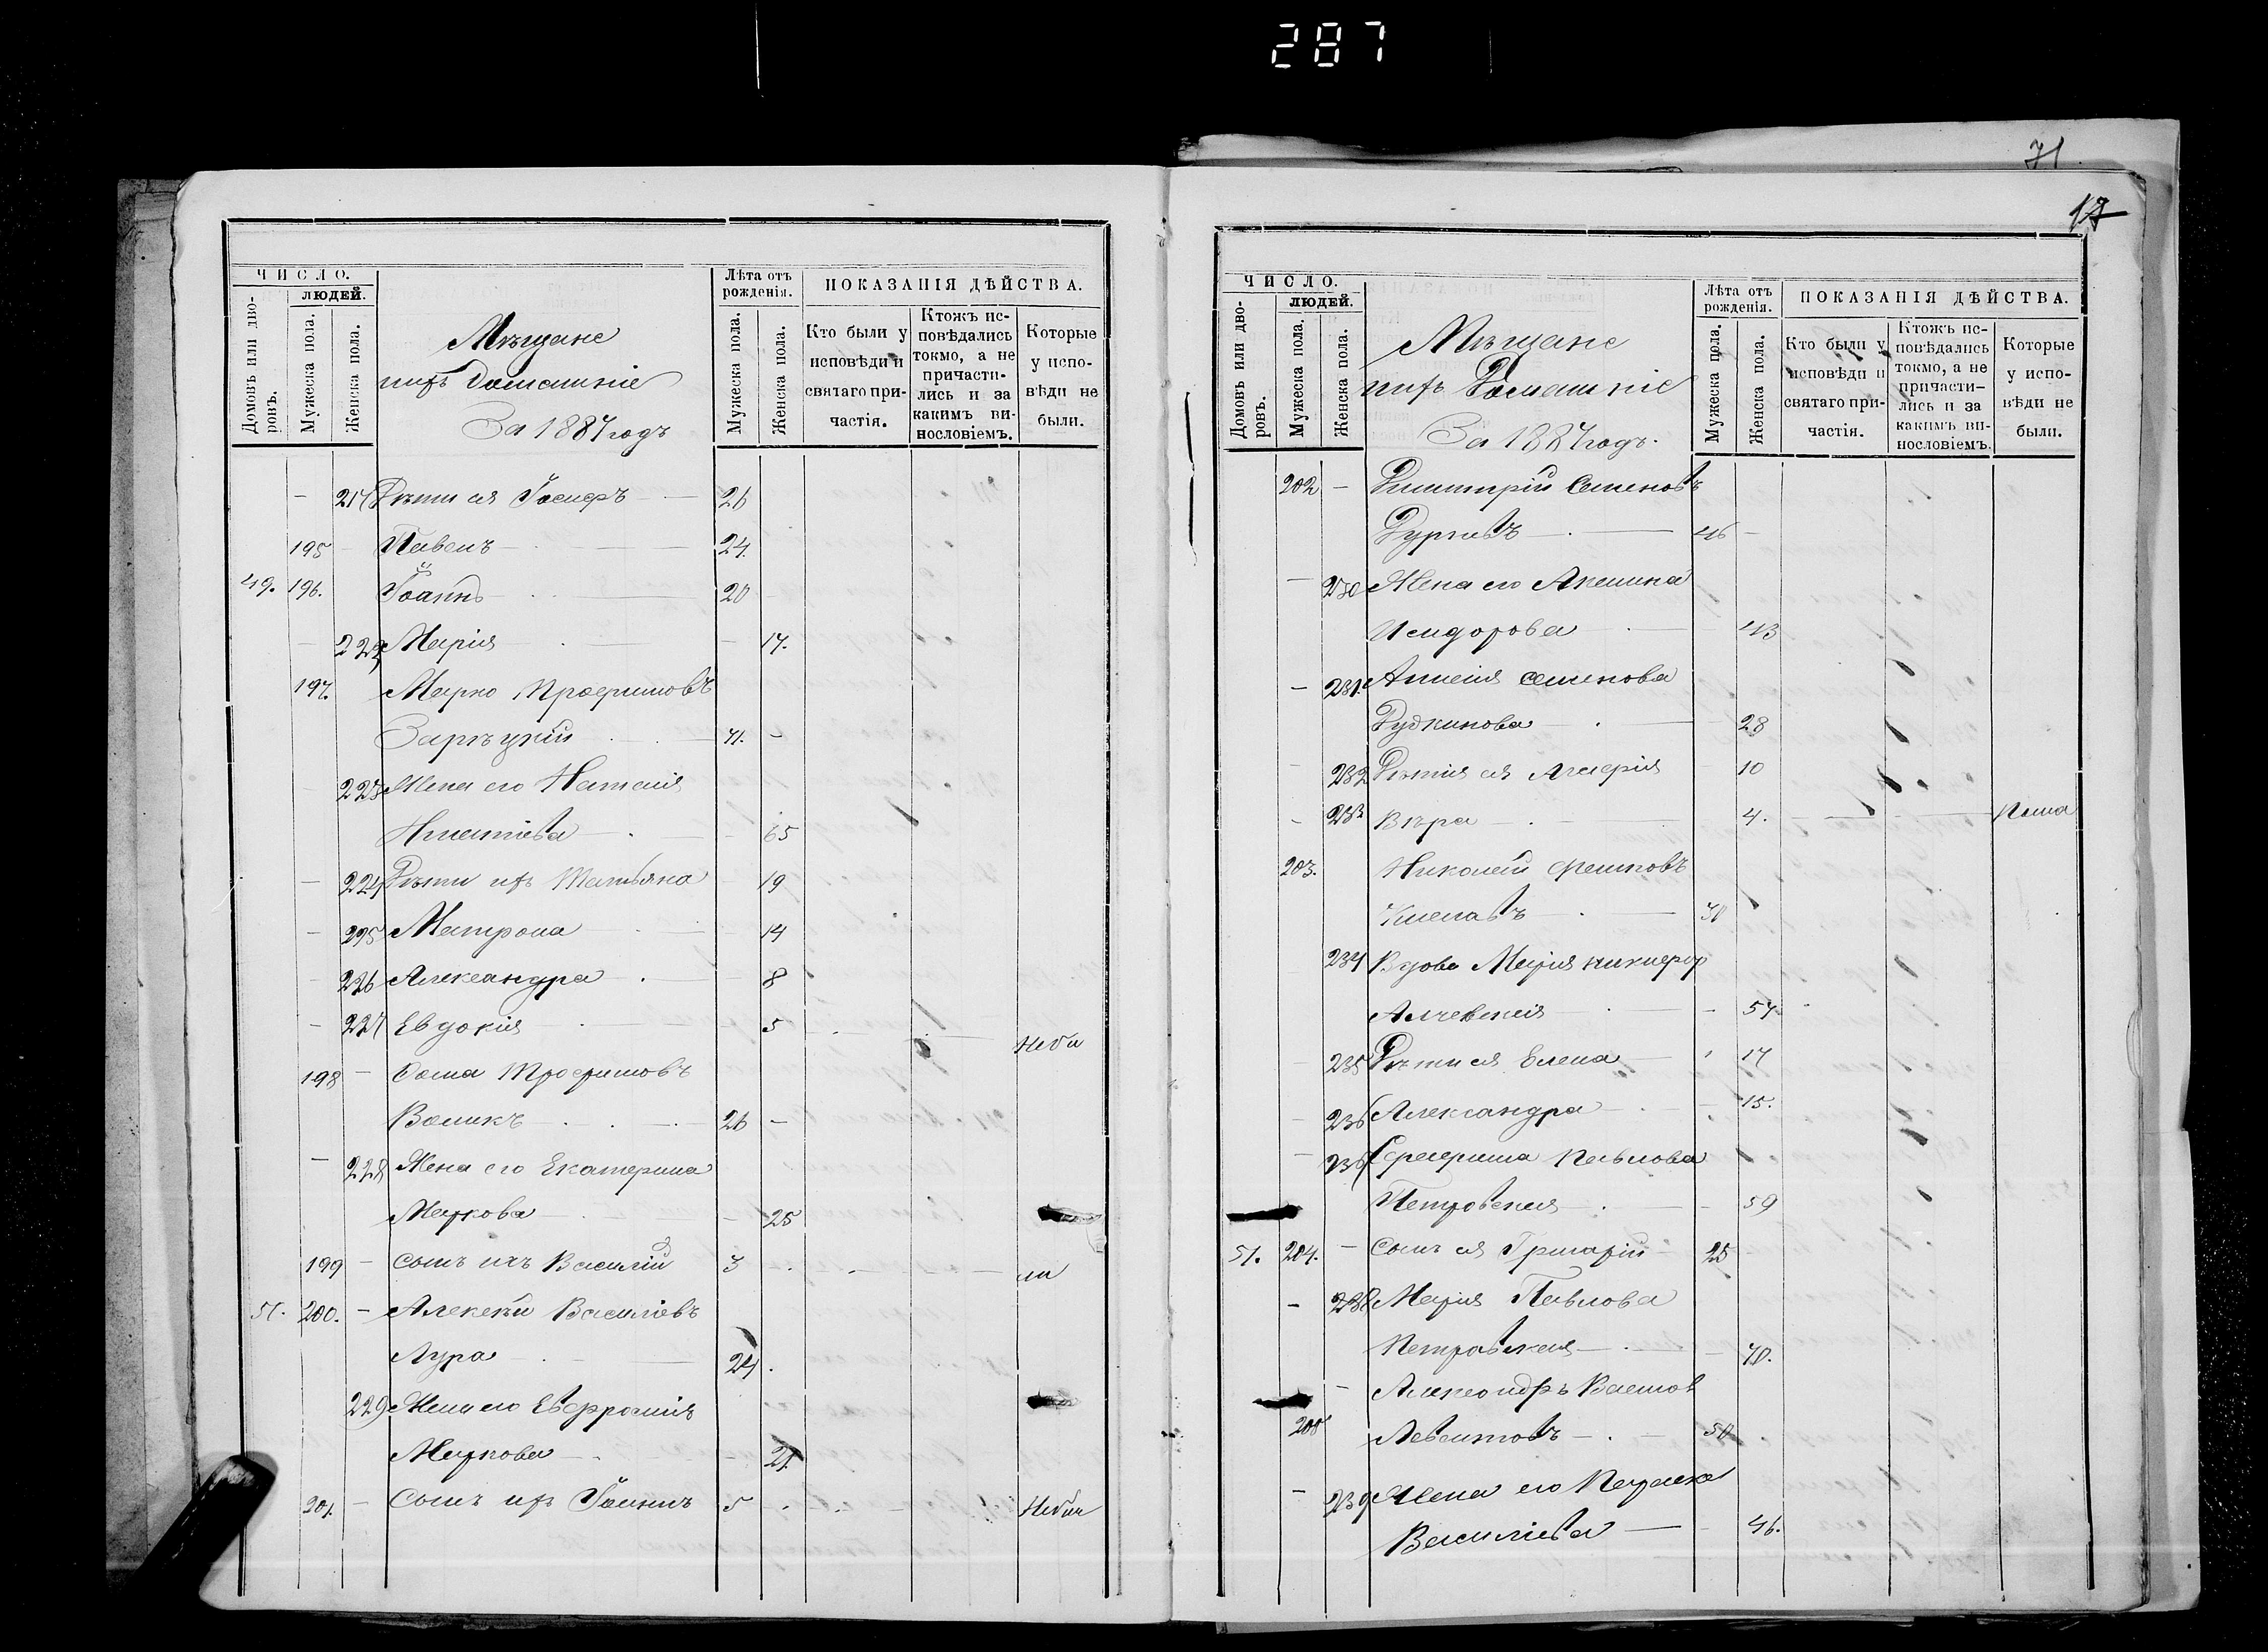 287
71
17
ЧИСЛО.
ЛЮДЕЙ.
Домовъ или дво-
ровъ.
Мужеска пола.
Женска пола.
Мѣщане
ихъ Домашніе
За 1887 годъ
Лѣта отъ
рожденія.
Мужеска пола.
Женска пола.
ПОКАЗАНІЯ ДѢЙСТВА.
Кто были у
исповѣди и
святаго при-
частія.
Ктожъ ис-
повѣдались
токмо, а не
причасти-
лись и за
какимъ ви-
нословіемъ.
Которые
у испо-
вѣди не
были.
Дѣти ея Іосифъ 26
195 Павелъ 24.
49. 196. Іоаннъ 20
Марія 17.
197. Марко Трофимовъ
Зарѣцкій 71.
223 Жена его Наталія
Игнатіева 65
224 Дѣти ихъ Татьяна 19
225 Матрона 14
226 Александра 8
227 Евдокія 5
198 Трофимовъ
26
228 Жена его Екатерина
Маркова 25
199 Сынъ ихъ Василій 3
200. Алексѣй Василіевъ
Лура 24.
229 Жена его Евфросинія
Маркова 21.
201. Сынъ ихъ Іоаннъ 5
ЧИСЛО.
ЛЮДЕЙ.
Домовъ или дво-
ровъ.
Мужеска пола.
Женска пола.
Мѣщане
ихъ Домашніе
За 1887 годъ.
Лѣта отъ
рожденія.
Мужеска пола.
Женска пола.
ПОКАЗАНІЯ ДѢЙСТВА.
Кто были у
исповѣди и
святаго при-
частія.
Ктожъ ис-
повѣдались
токмо, а не
причасти-
лись и за
какимъ ви-
нословіемъ.
Которые
у испо-
вѣди не
были.
202 Димитрій Семеновъ
46
230 Жена его Акилина
Исидорова 43
231. Семенова
28
232 10
233 Вѣра 4.
203. Николай
30
234 Вдова Марія никифор
Алчевская 57
235 Дѣти ея Елена 17
236 Александра 15.
Павлова
Петровская 59
51. 204. Сынъ ея Григорій 25
238 Марія Павлова
Петровская 70.
50
239 Жена его
Василіева 46.